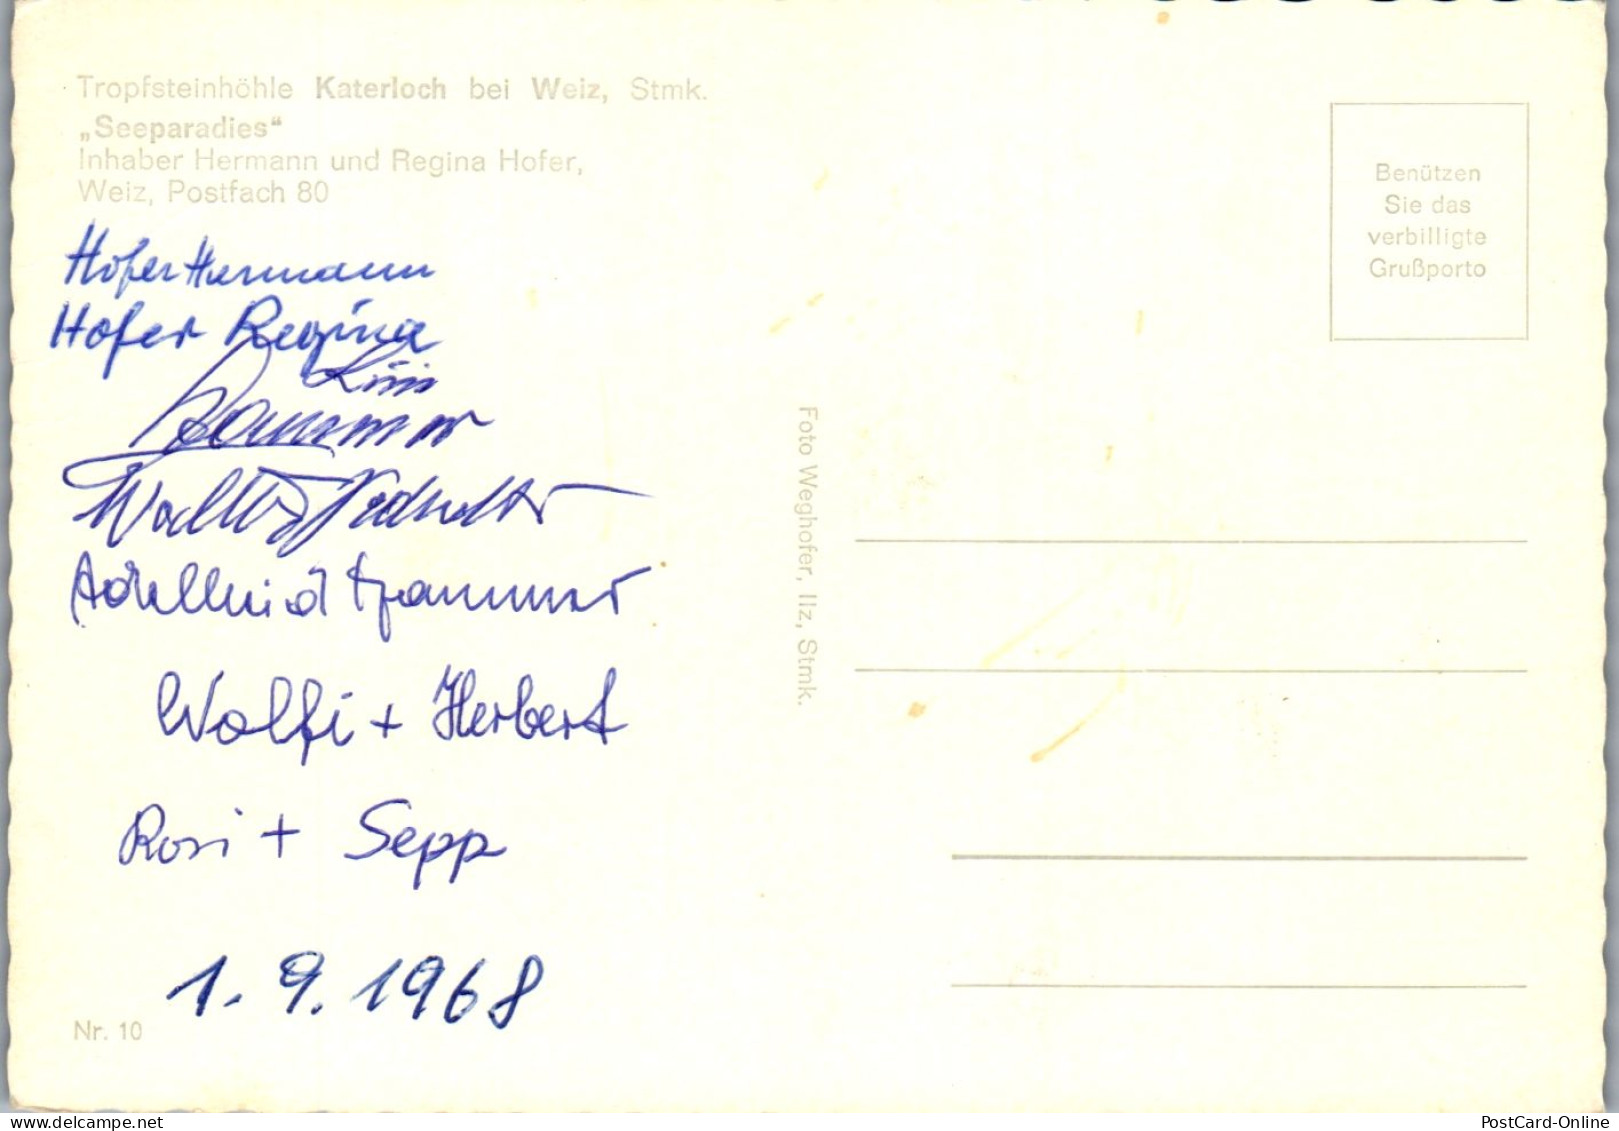 Tropfsteinhöhle Katerloch bei Weiz, Stmk.
„Seeparadies“
Inhaber Hermann und Regina Hofer,
Weiz, Postfach 80
Hofer Hermann
Hofer Regina
Walter
Adelheid
Wolfi + Herbert
Rosi + Sepp
1. 9. 1968
Nr. 10
Foto Weghofer, Ilz, Stmk.
Benützen
Sie das
verbilligte
Grußporto
PostCard-Online